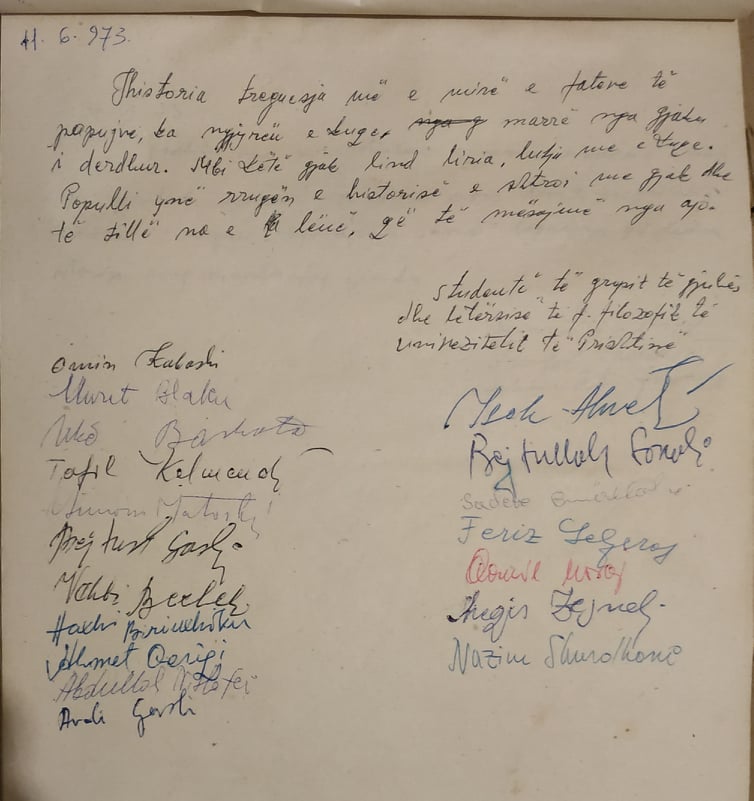 11. 6. 973.
Historia treguesja më e mirë e fateve të
popujve, ka ngjyrën e kuqe, nga g marrë nga gjaku
i derdhur. Mbi këtë gjak lind liria, lulja me e kuqe.
Populli ynë rrugën e historisë e shtroi me gjak dhe
të tillë na e la lënë, që të mësojmë nga ajo.
Studentë të grupit të gjuhës
dhe letërsisë të f. filozofik të
univezitetit të Prishtinës
Emin Kabashi
Murat Blaku
Tafil Kelmendi
Bejtush Gashi
Vehbi
Haxhi Birinxhiku
Ahmet Qeriqi
Abdullah
Avdi Gashi
Isak Ahmeti
Bejtullah Sonali
Sadete
Feriz
Qamil
Regjis Zejneli
Nazim